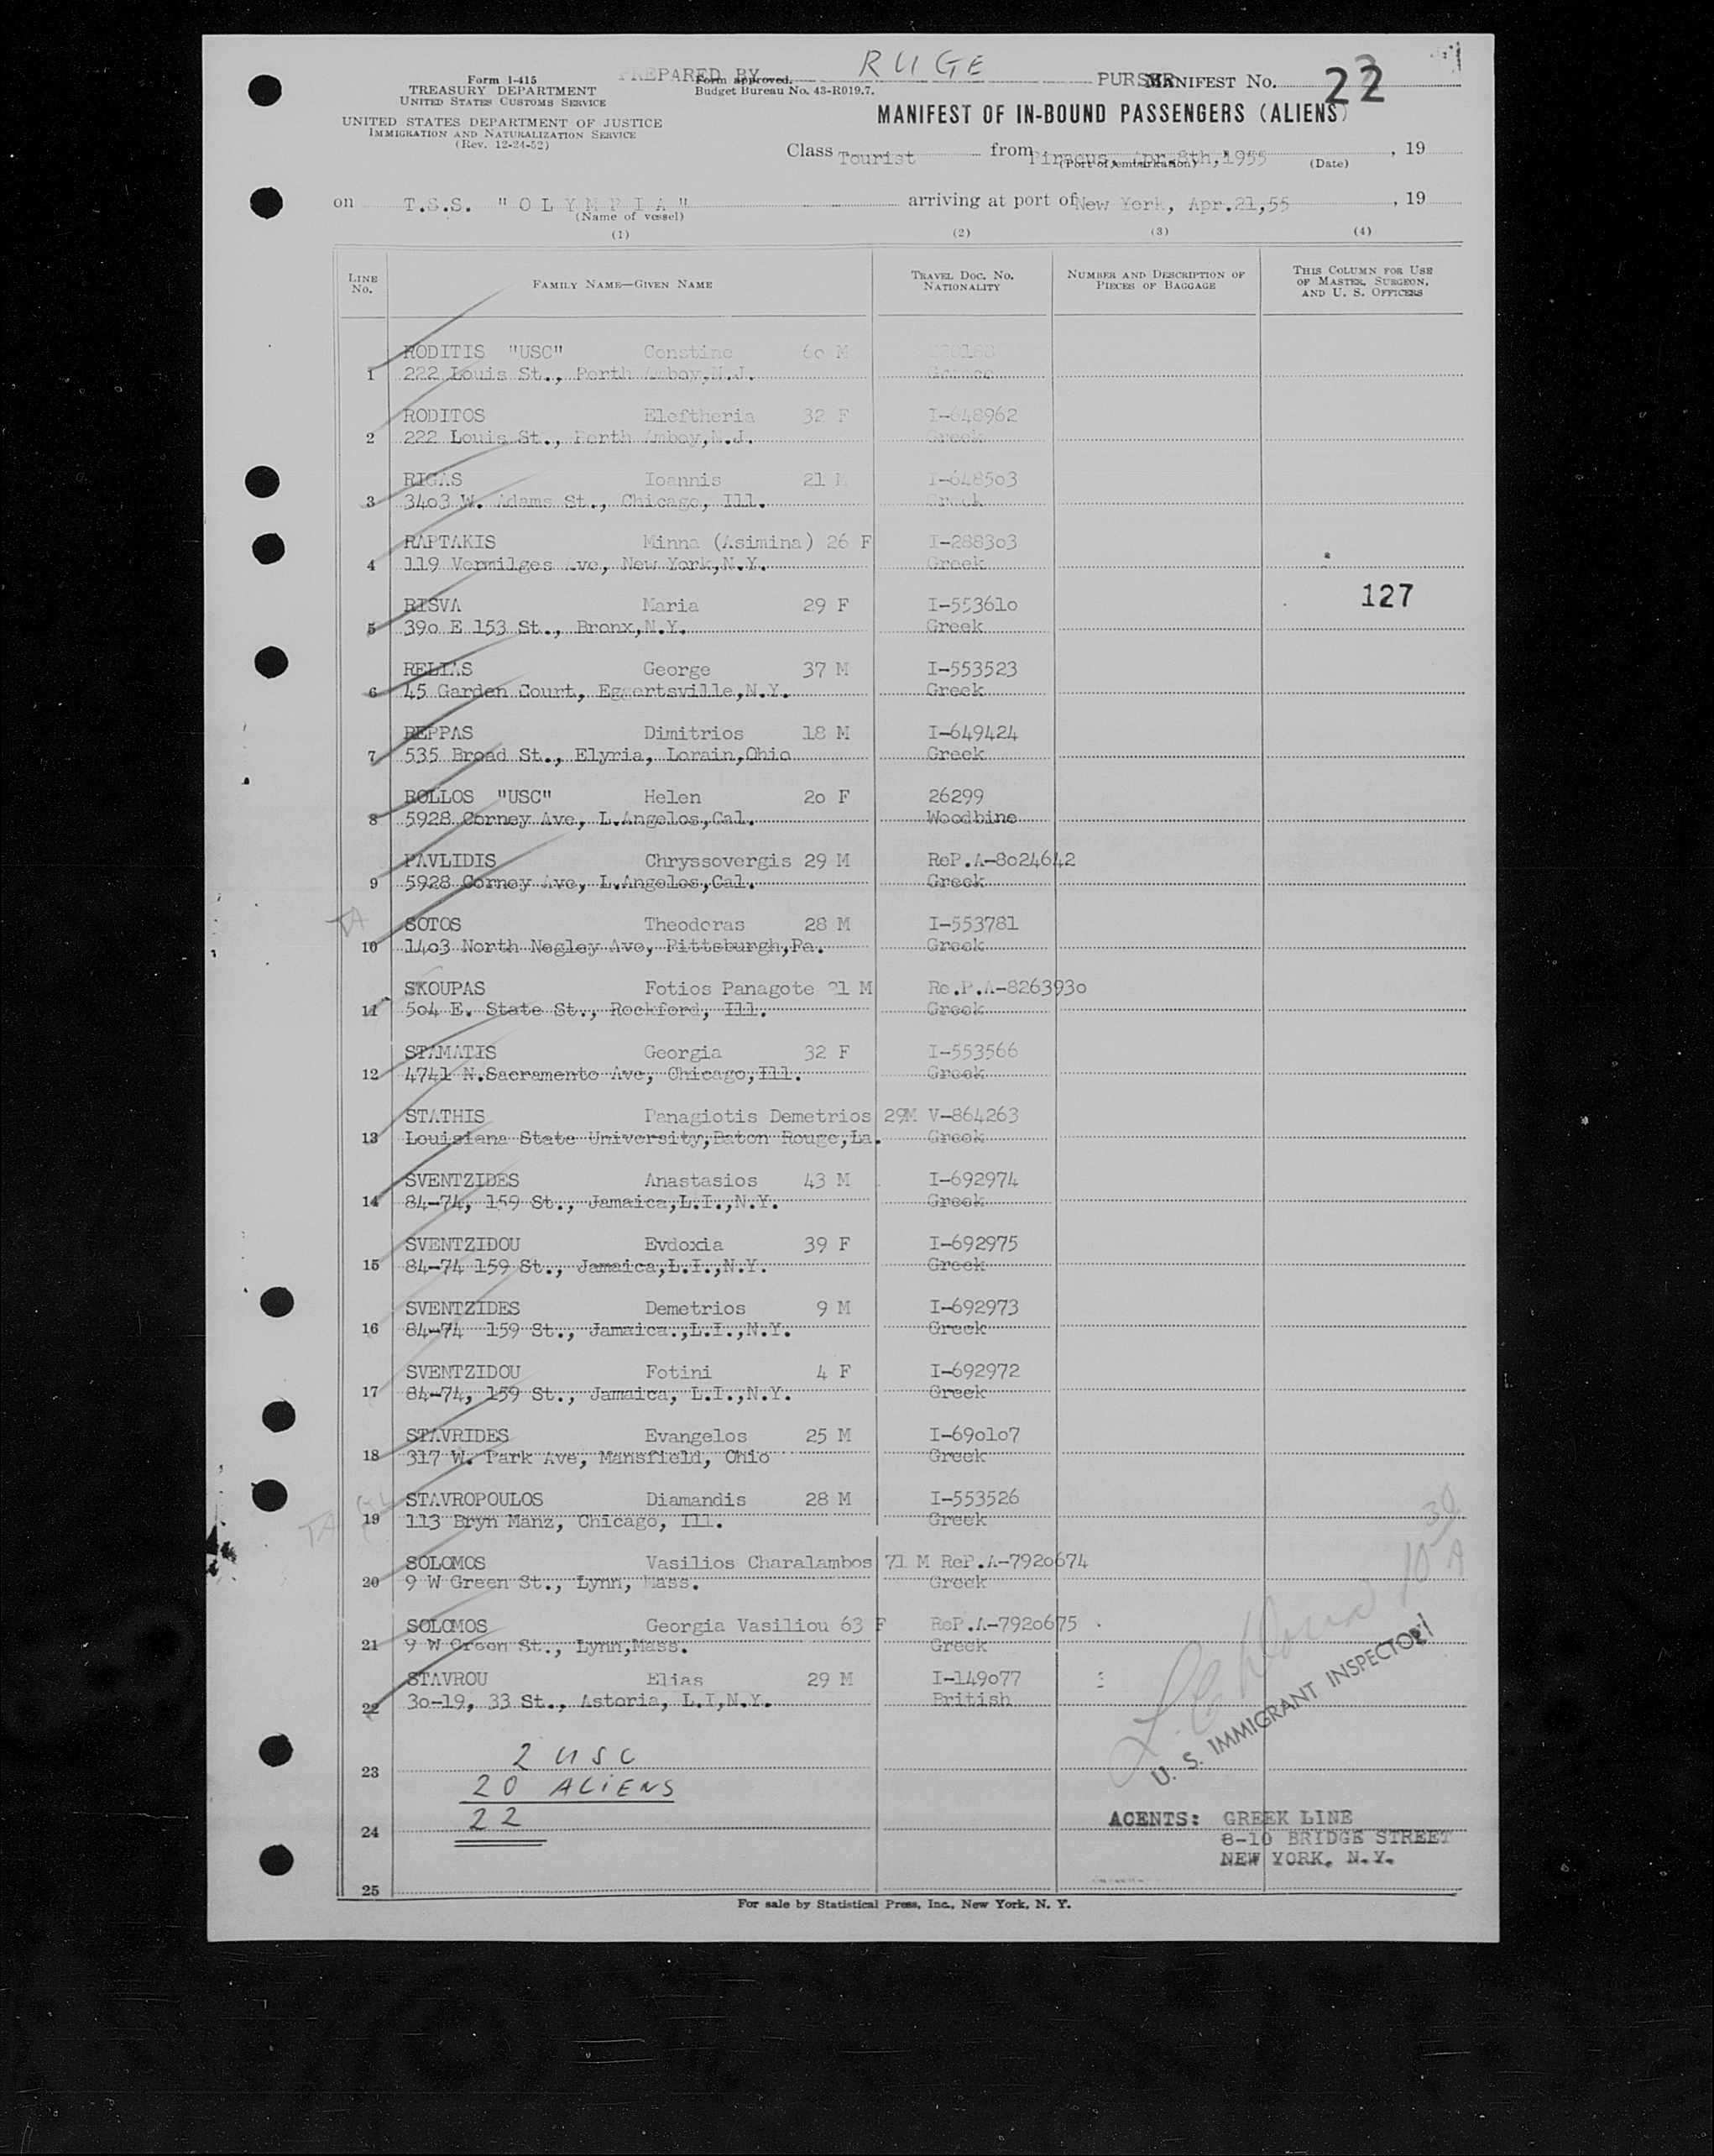 Form I-415
TREASURY DEPARTMENT
UNITED STATES CUSTOMS SERVICE
UNITED STATES DEPARTMENT OF JUSTICE
IMMIGRATION AND NATURALIZATION SERVICE
(Rev. 12-24-52)
PREPARED BY RUGE PURSER
Form approved.
Budget Bureau No. 43-R019.7.
MANIFEST No. 22
MANIFEST OF IN-BOUND PASSENGERS (ALIENS)
Class Tourist from Piraeus, Apr.8th,1955 , 19
(Port of embarkation) (Date)
on T.S.S. "OLYMPIA" arriving at port of New York, Apr.21,55 , 19
(Name of vessel)
(1) (2) (3) (4)
LINE No. FAMILY NAME—GIVEN NAME TRAVEL DOC. No. NATIONALITY NUMBER AND DESCRIPTION OF PIECES OF BAGGAGE THIS COLUMN FOR USE OF MASTER, SURGEON, AND U. S. OFFICERS
RODITIS "USC" Constine 60 M
1 222 Louis St., Perth Amboy,N.J.
RODITOS Eleftheria 32 F I-648962
2 222 Louis St., Perth Amboy,N.J. Greek
RIGAS Ioannis 21 M I-648503
3 3403 W. Adams St., Chicago, Ill. Greek
RAPTAKIS Minna (Asimina) 26 F I-288303
4 119 Vermilges Ave, New York,N.Y. Greek
127
RISVA Maria 29 F I-553610
5 390 E 153 St., Bronx,N.Y. Greek
RELIAS George 37 M I-553523
6 45 Garden Court, Eggertsville,N.Y. Greek
REPPAS Dimitrios 18 M I-649424
7 535 Broad St., Elyria, Lorain,Ohio Greek
ROLLOS "USC" Helen 20 F 26299
8 5928 Corney Ave, L.Angelos,Cal. Woodbine
PAVLIDIS Chryssovergis 29 M ReP.A-8024642
9 5928 Corney Ave, L.Angelos,Cal. Greek
SOTOS Theodoras 28 M I-553781
10 1403 North Negley Ave, Pittsburgh,Pa. Greek
SKOUPAS Fotios Panagote 21 M Re.P.A-8263930
11 504 E. State St., Rockford, Ill. Greek
STAMATIS Georgia 32 F I-553566
12 4741 N.Sacramento Ave, Chicago,Ill. Greek
STATHIS Panagiotis Demetrios 29M V-864263
13 Louisiana State University,Baton Rouge,La. Greek
SVENTZIDES Anastasios 43 M I-692974
14 84-74, 159 St., Jamaica,L.I.,N.Y. Greek
SVENTZIDOU Evdoxia 39 F I-692975
15 84-74 159 St., Jamaica,L.I.,N.Y. Greek
SVENTZIDES Demetrios 9 M I-692973
16 84-74 159 St., Jamaica.,L.I.,N.Y. Greek
SVENTZIDOU Fotini 4 F I-692972
17 84-74, 159 St., Jamaica, L.I.,N.Y. Greek
STAVRIDES Evangelos 25 M I-690107
18 317 W. Park Ave, Mansfield, Ohio Greek
STAVROPOULOS Diamandis 28 M I-553526
19 113 Bryn Manz, Chicago, Ill. Greek
SOLOMOS Vasilios Charalambos 71 M ReP.A-7920674
20 9 W Green St., Lynn, Mass. Greek
SOLOMOS Georgia Vasiliou 63 F ReP.A-7920675
21 9 W Green St., Lynn,Mass. Greek
STAVROU Elias 29 M I-149077
22 30-19, 33 St., Astoria, L.I,N.Y. British
U. S. IMMIGRANT INSPECTOR
2 USC
23
20 ALIENS
22
24
AGENTS: GREEK LINE
8-10 BRIDGE STREET
NEW YORK, N.Y.
25
For sale by Statistical Press, Inc., New York, N. Y.